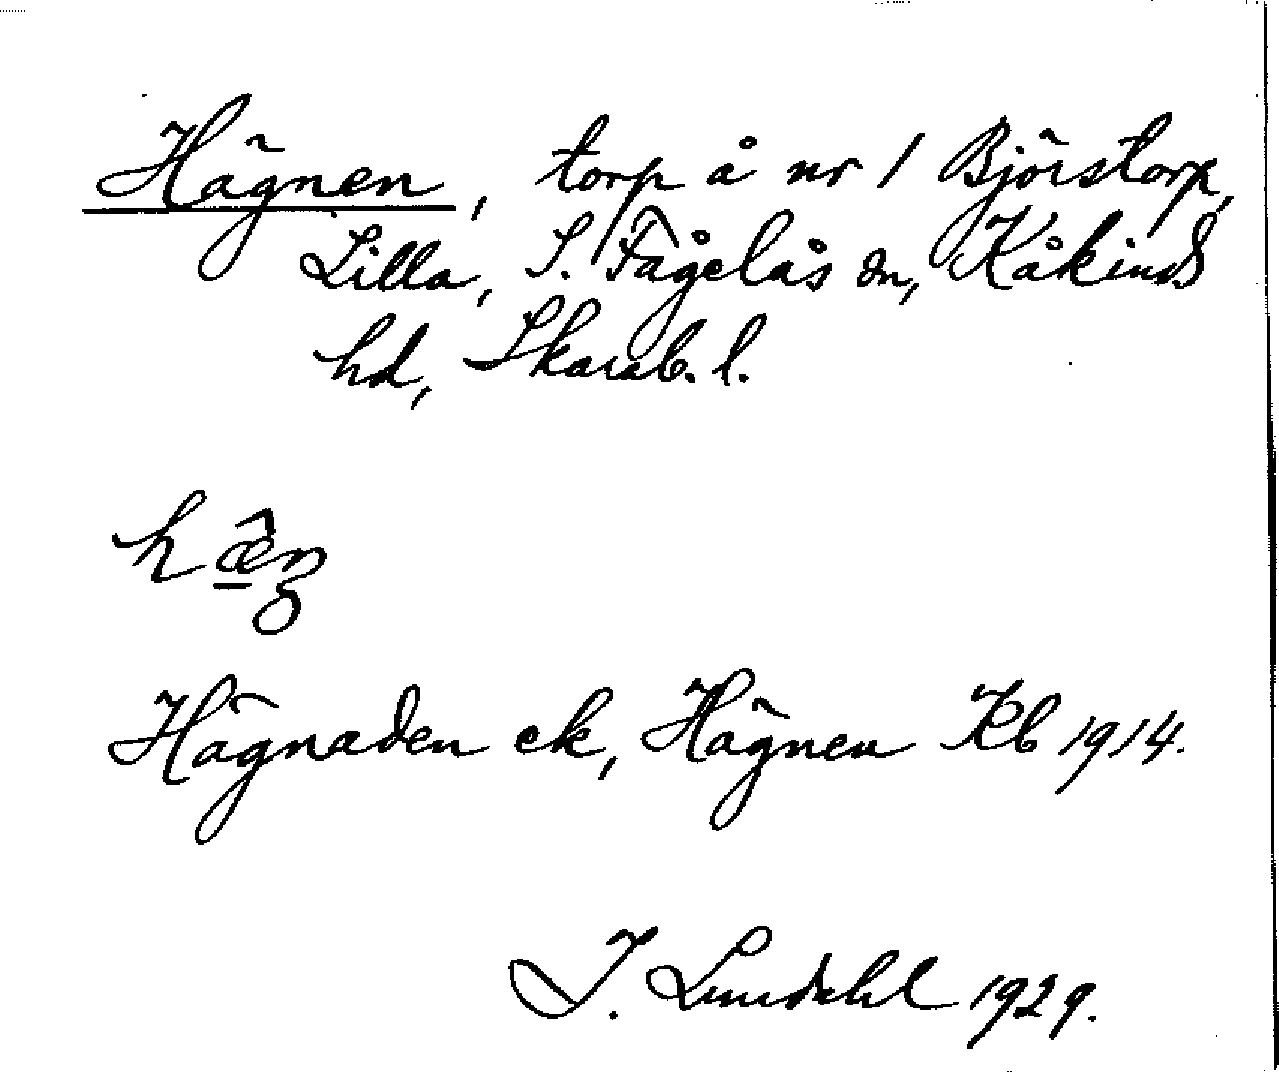 Hägnen, torp å nr 1 Björstorp,
Lilla, S. Fågelås sn, Kåkinds
hd, Skarab. l.
Hägnaden ek, Hägnen Kb 1914.
I. Lundahl 1929.